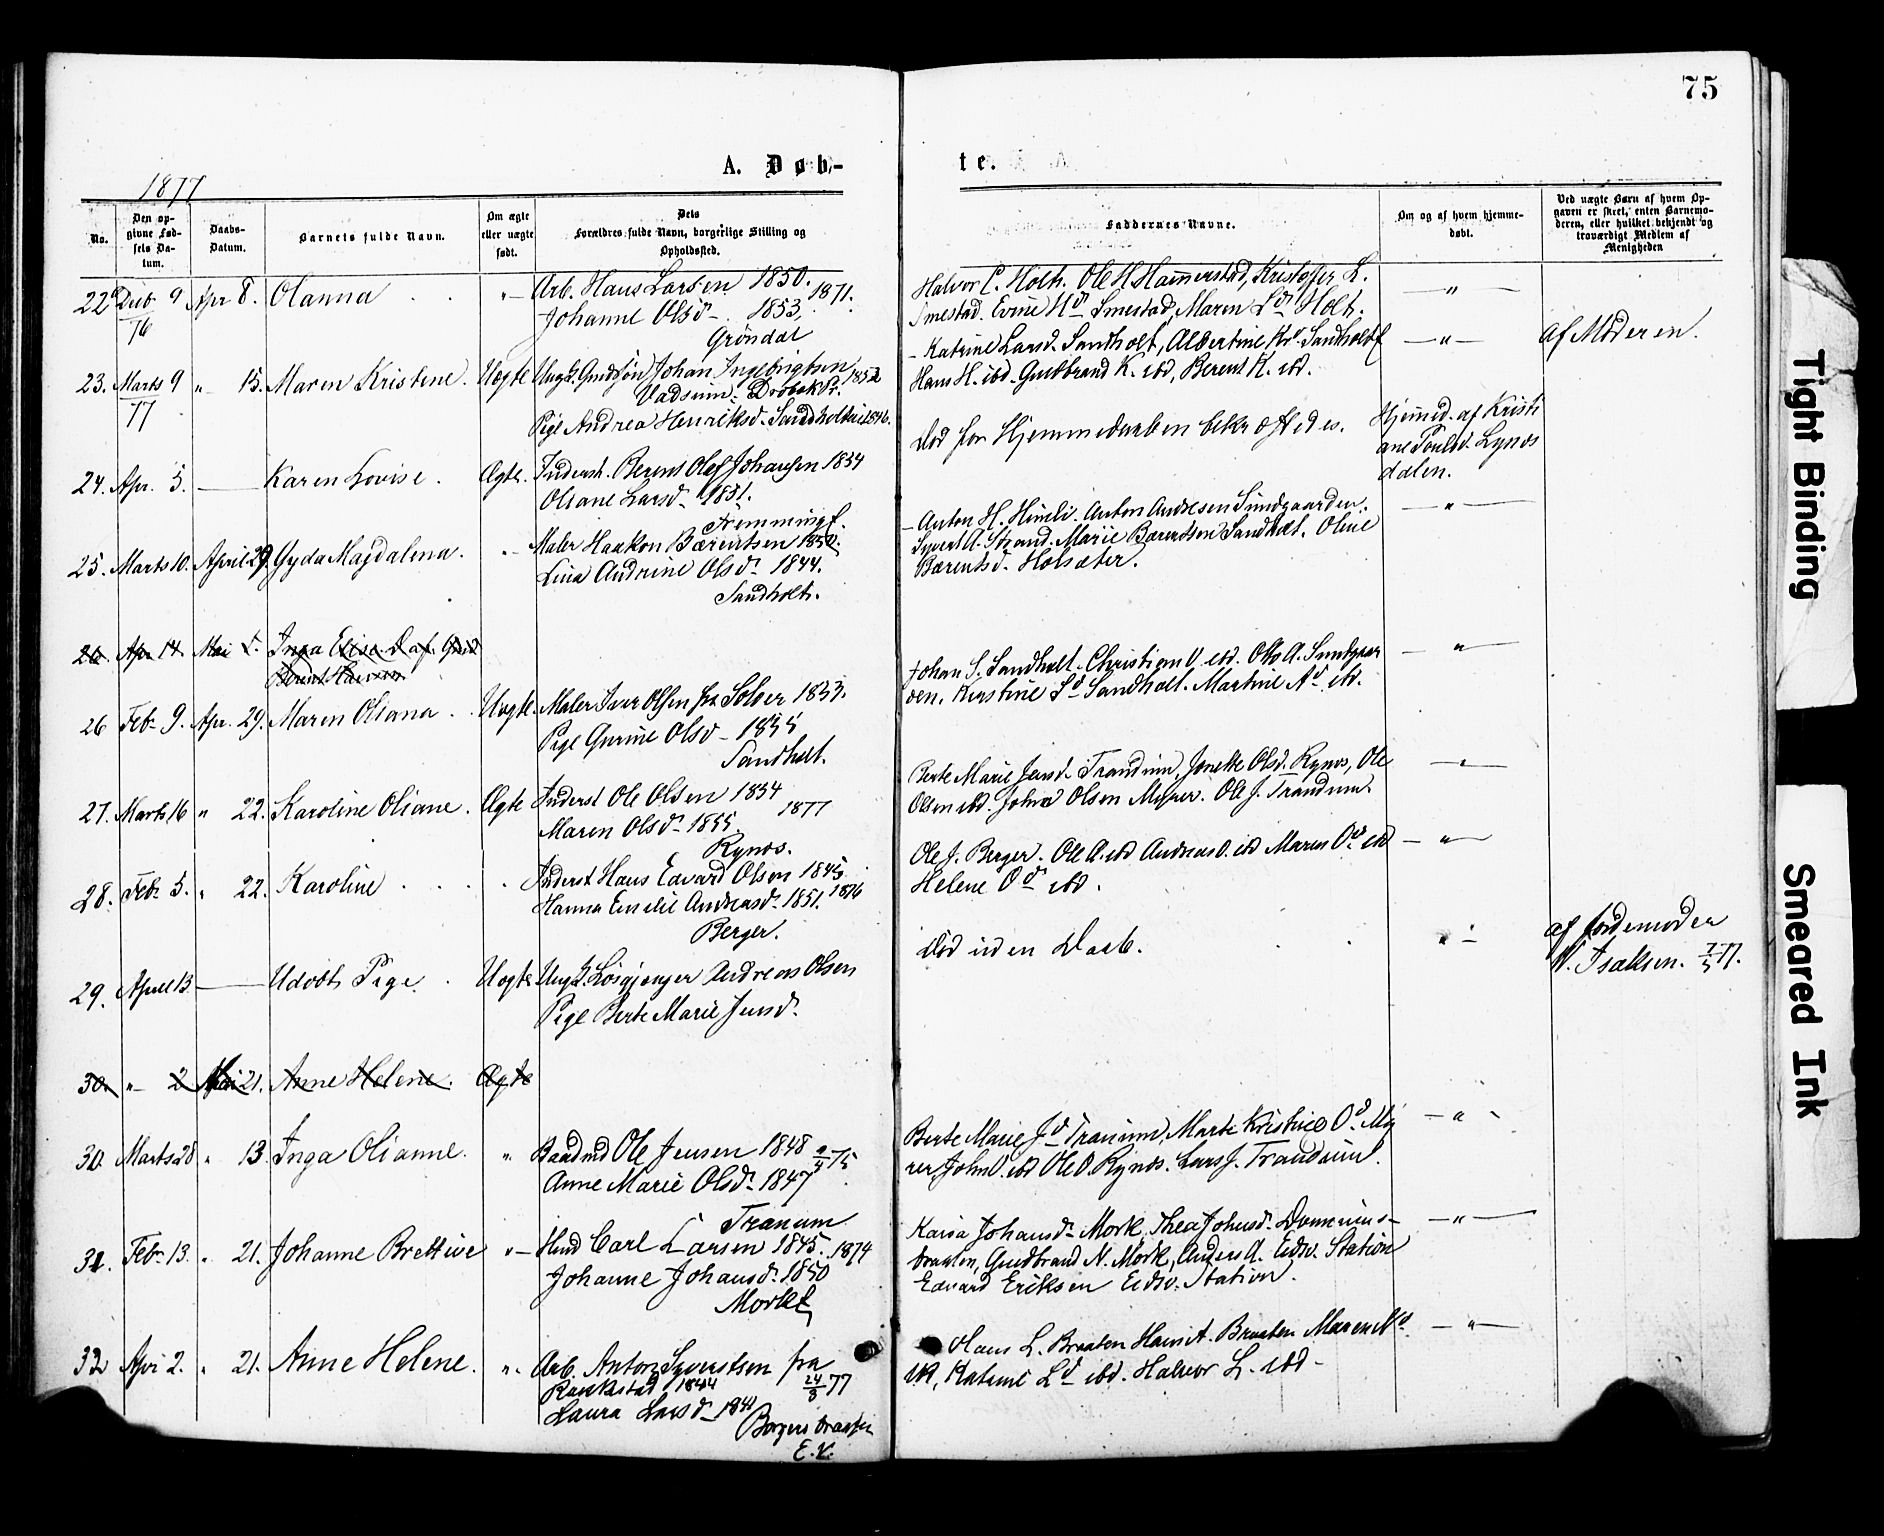 75
A. Døb-
te.
1877
No.
Den op-
givne Fød-
sels Da-
tum.
Daabs-
Datum.
Barnets fulde Navn.
Om ægte
eller uægte
født.
Dets
Forældres fulde Navn, borgerlige Stilling og
Opholdssted.
Faddernes Navne.
Om og af hvem hjemme-
døbt.
Ved uægte Børn af hvem Op-
gaven er skeet, enten Barnemo-
deren, eller hvilket bekjendt og
troværdigt Medlem af
Menigheden
22 9 Apr 8. Olanna " Arb. Hans Larsen 1850.
76 Johanne Olsd. 1853, 1871.
Grøndal
Halvor C. Holth. Ole H Hammerstad, Kristoffer L.
Smestad. Evine Hd Smestad, Maren Ld Holt. "
23. Marts 9 " 15. Maren Kristine. Uægte Johan Ingebrigtsen 1852
77 Drøbak
Pige Andrea Henriksd. 1846.
Katrine Larsd. Sandholt, Albertine Sandholt
Hans H. ibd. Gudbrand K. ibd, Berent K. ibd. " af Moderen.
24. Apr. 5. Karen Lovise. Ægte. Inderst. Berent Olaf Johansen 1834
Oliane Larsd. 1831.
Død før Hjemmedaaben bekræftedes. Hjemmed. af Kristi
ane Poulsd. Lynæs
dalen.
25. Marts 10. April 29 Gyda Magdalena. " Maler Haakon Bærentsen 1850.
Lina Andrine Olsd. 1844.
Sandholt.
Anton H. Himli. Anton Andresen Sundgaarden.
Syvert A. Strand. Marie Bærentsen Sandholt. Oline
Bærentsd. Holsæter. "
26. Apr 14 Mai Inga Elise D. af
Berent Hansen
26 Feb. 9. Apr. 29. Maren Oliana. Uægte. Maler Iver Olsen fra Soløer 1833.
Pige Gurine Olsd. 1835
Sandholt.
Johan S. Sandholt. Christian O. ibd. Otto A. Sundgaar
den, Kirstine Sd Sandholt. Martine Ad ibd. "
27. Marts 16 " 22. Karoline Oliane. Ægte Inderst Ole Olsen 1834
Maren Olsd. 1855 1877
Rynos.
Berte Marie Jensd. Trandum, Jonette Olsd. Rynos, Ole
Olsen ibd. Johan Olsen Myrer. Ole J. Trandum. "
28. Feb. 5. " 22. Karoline Inderst Hans Edvard Olsen 1845
Hanna Emilie Andreasd. 1851. 1876
Berger.
Ole J. Berger. Ole A. ibd Andreas O. ibd Maren Od ibd
Helene Od ibd. "
29. April 13 Udøbt Pige Uægte Ungk. Løsgjenger Andreas Olsen
Pige Berte Marie Jensd.
Død uden Daab. " af Jordemoder
N. Isaksen. 7/5 77.
30. " 2 Mai 21. Anne Helene. Ægte
30. Marts 28 " 13. Inga Olianne. " Baadmd Ole Jensen 1848
Anne Marie Olsd. 1847
Tranum
Berte Marie Jd Tranum, Marte Kristine Od My
rer, John O. ibd Ole O. Rynos. Lars J. Trandum. "
31. Febr. 13. " 21. Johanne Brettine " Hmd Carl Larsen 1845. 1874
Johanne Johansd. 1850
Mork
Karia Johansd. Mork, Thea Johnsd. Dammens-
braaten, Gudbrand N. Mork, Anders A. Eidsv. Station
Edvard Eriksen Eidsv. Station. "
32 Apr. 2. " 21. Anne Helene. " Arb. Anton Syvertsen fra
1844 24/3 77
Laura Larsd. 1841
Borgersbraaten
E.V.
Hans L. Braaten Hans A. Braaten Maren Nd
ibd, Katrine Ld ibd. Halvor L. ibd. "
Tight Binding
Smeared Ink